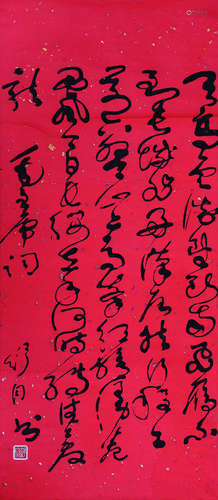 天高云淡望断南飞雁不
到长城非好汉屈指行程二
万六盘山上高峰红旗漫卷
西风今日长缨在手何时缚住苍
龙 毛主席词